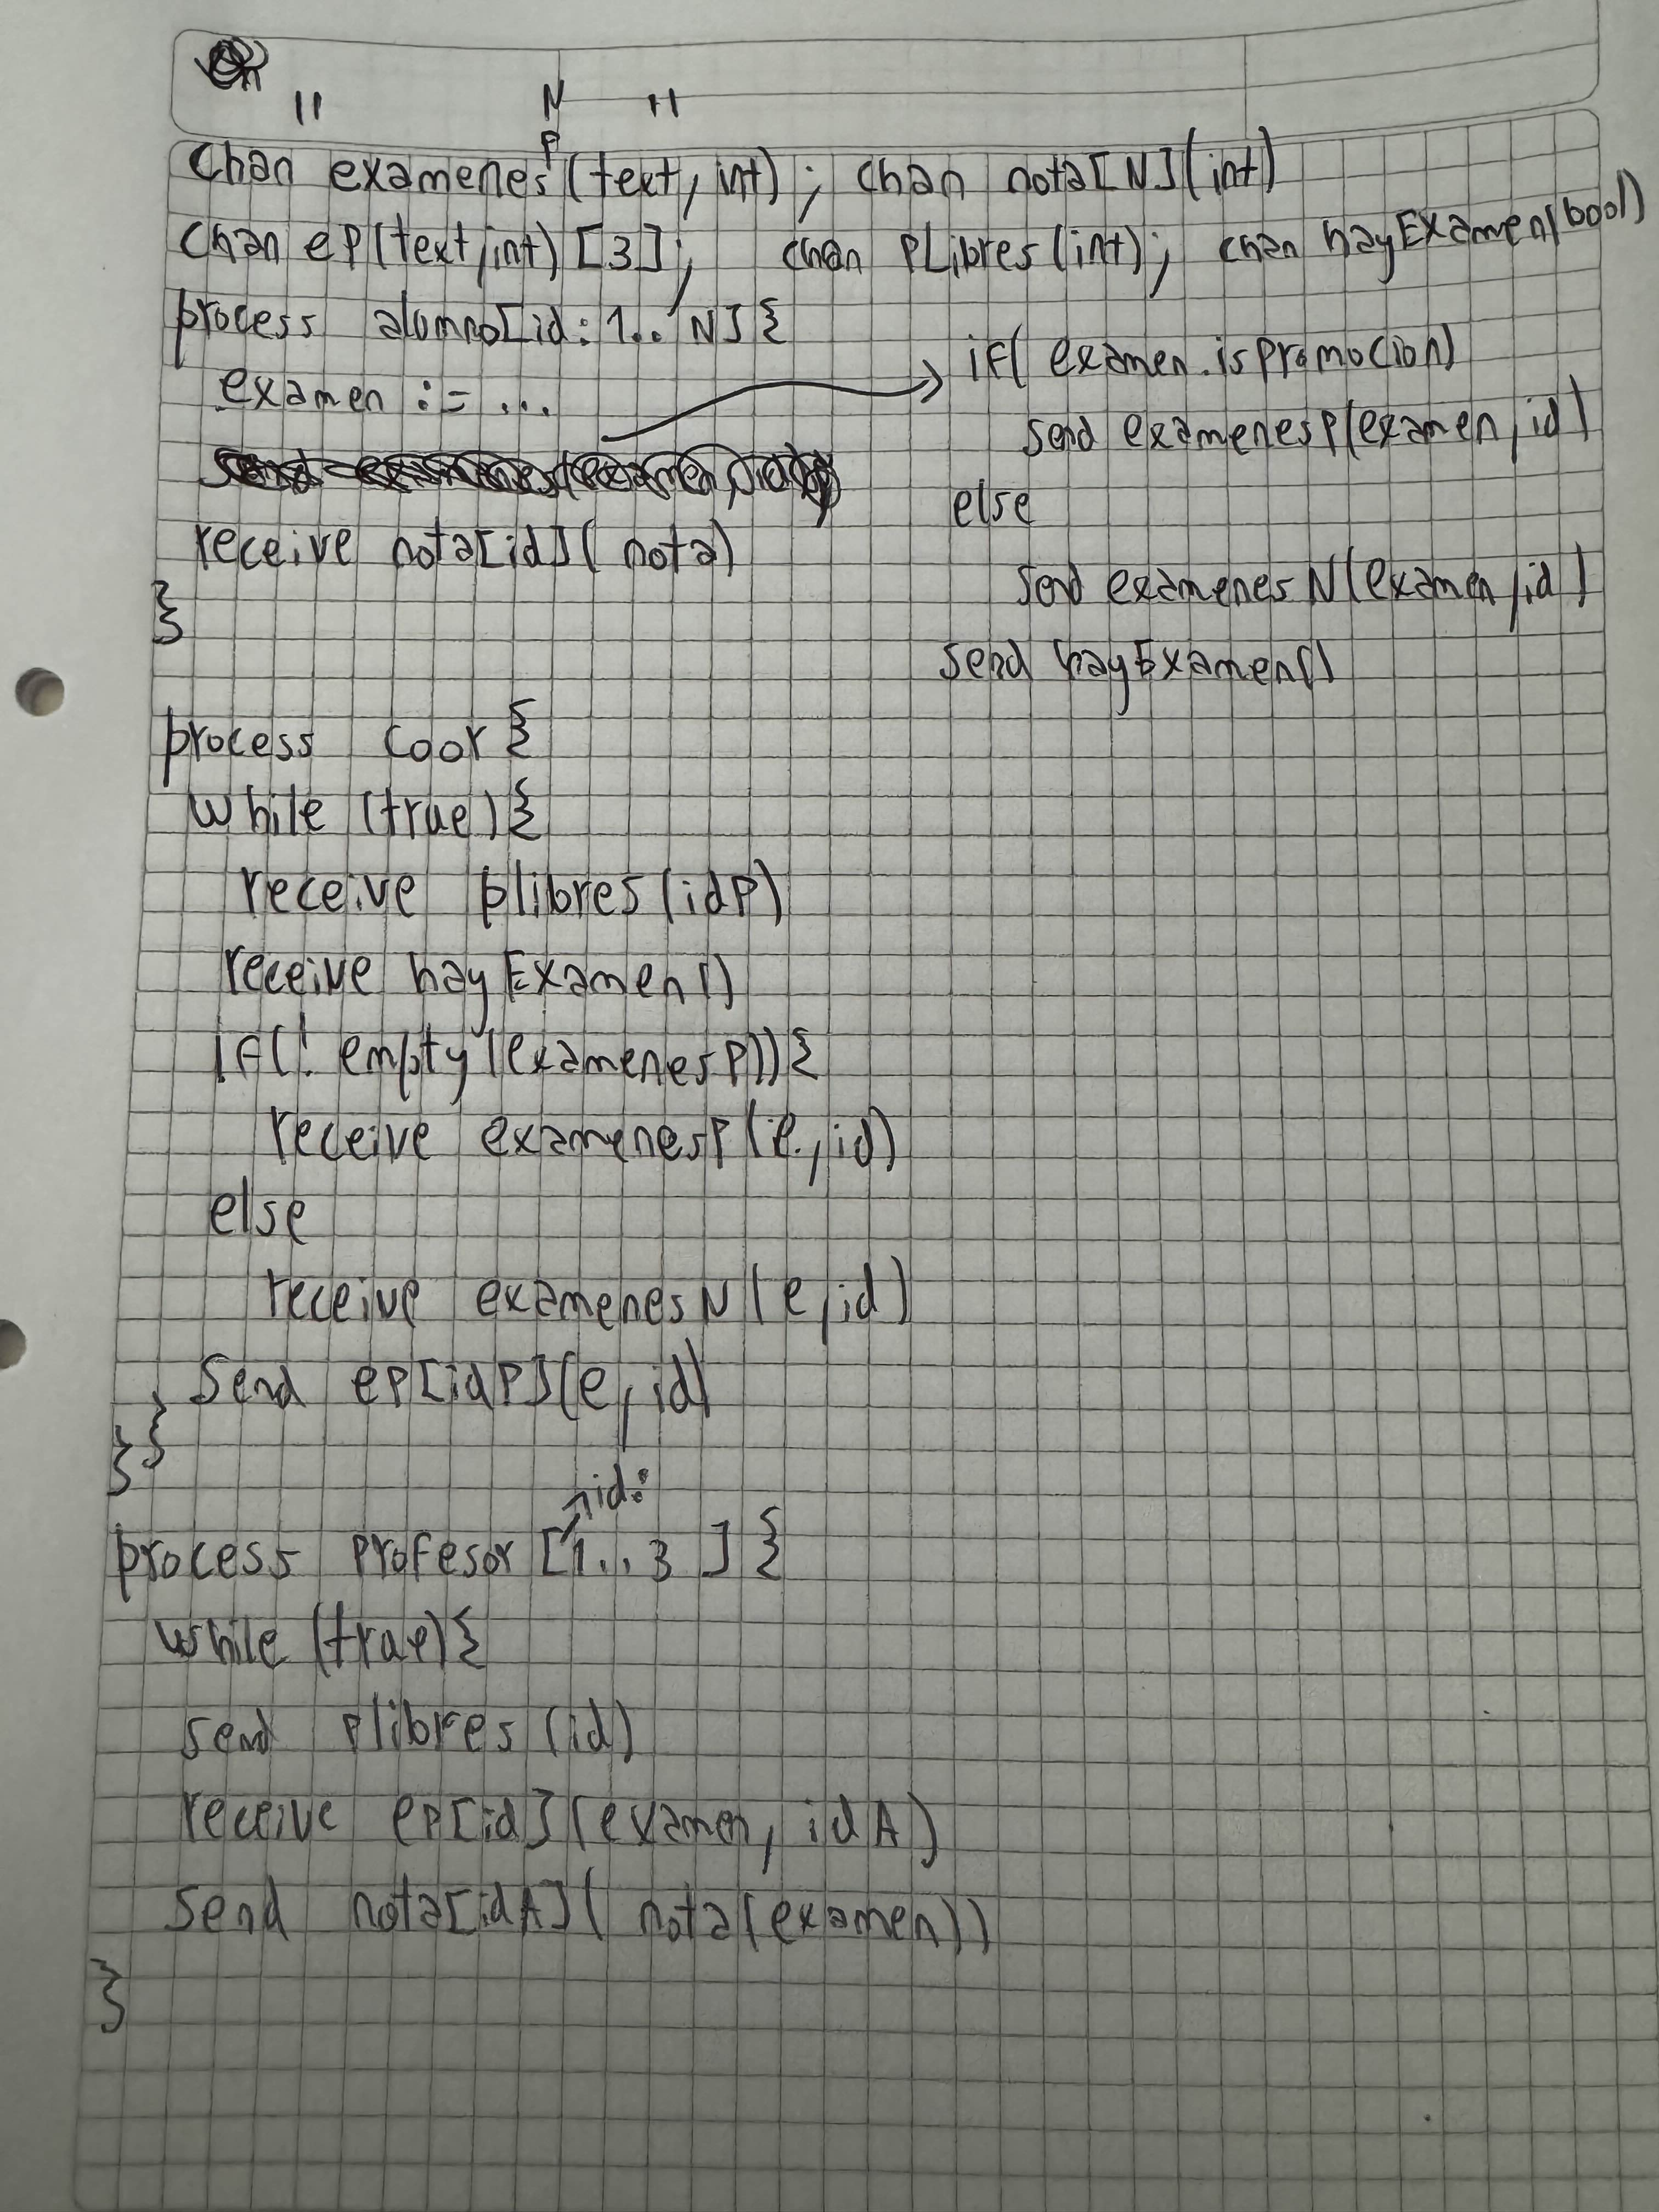 " N "
P
chan examenes (text, int); chan nota[N](int)
chan ep(text, int)[3]; chan pLibres(int); chan hayExamen(bool)
process alumno[id: 1.. N]{
examen := ...
receive nota[id](nota)
}
if(examen.isPromocion)
send examenesP(examen, id)
else
send examenes N(examen, id)
send hayExamen()
process coor {
while (true){
receive plibres(idP)
receive hayExamen()
if(! empty(examenesP)){
receive examenesP(e, id)
else
receive examenesN(e, id)
send ep[idP](e, id)
}
}
id:
process Profesor [1.. 3] {
while (true){
send plibres (id)
receive ep[id](examen, idA)
send nota[idA](nota(examen))
}